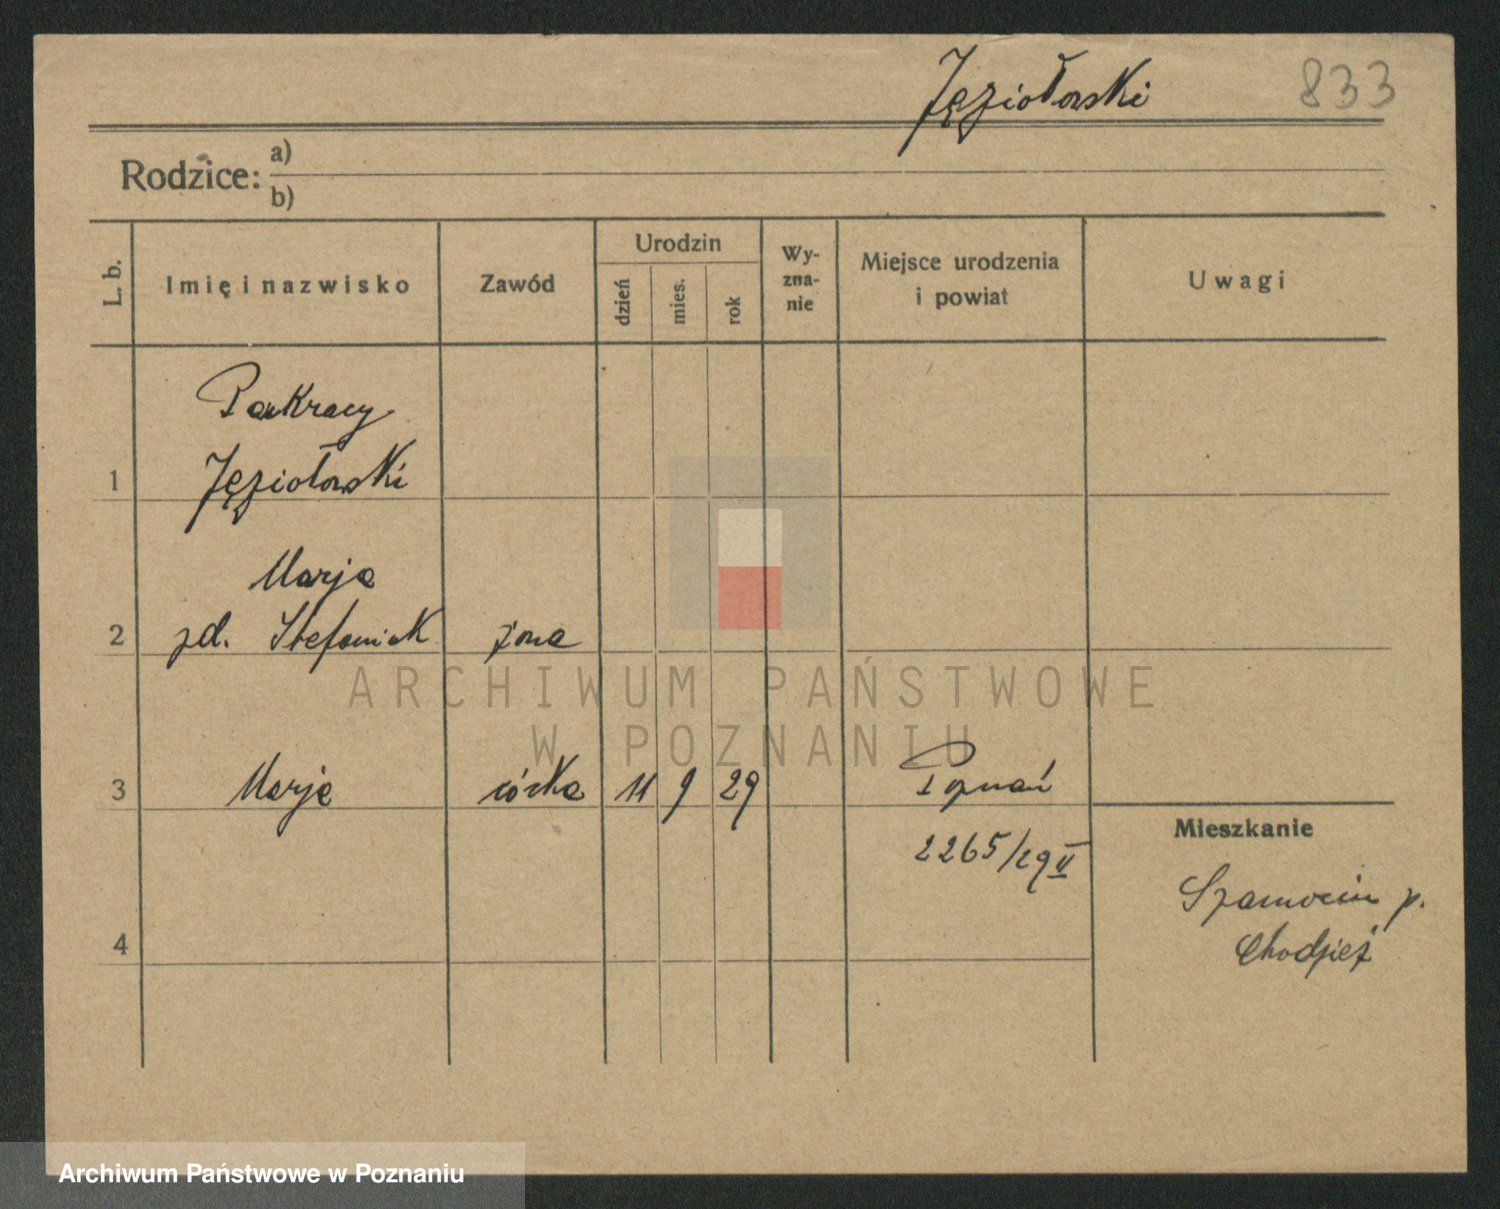 Jęziołowski 833
Rodzice: a)
b)
L. b. Imię i nazwisko Zawód Urodzin dzień mies. rok Wy-zna-nie Miejsce urodzenia i powiat Uwagi
Pankracy
1 Jęziołowski
Marja
2 zd. Stefaniak żona
3 Marja córka 11 9 29 Poznań
Mieszkanie
2265/29 II
Szamocin p.
4 Chodzież
ARCHIWUM PAŃSTWOWE
W POZNANIU
Archiwum Państwowe w Poznaniu